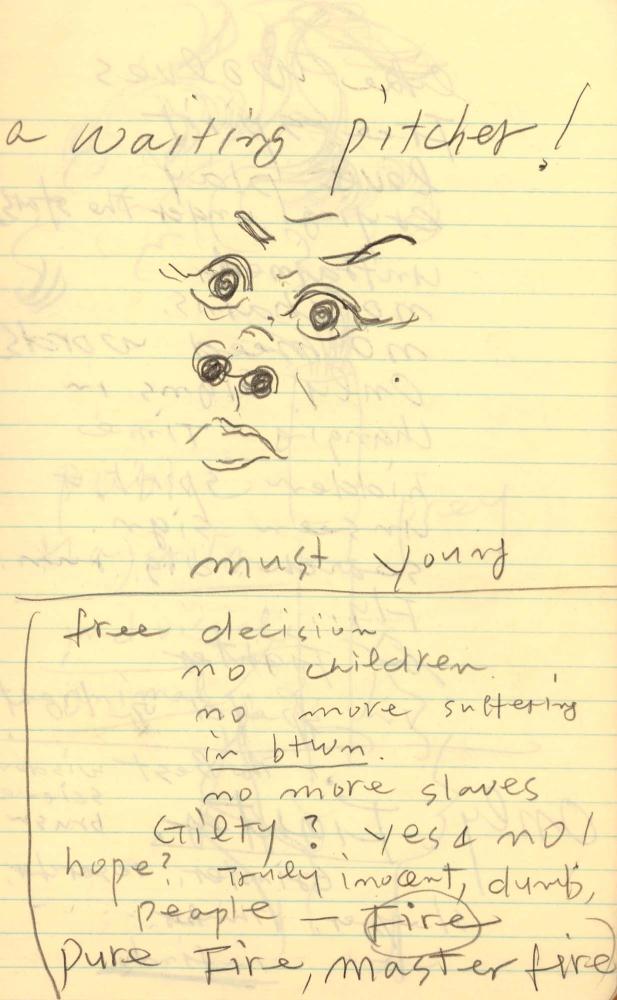 a waiting pitcher!
must young
free decision
no children
no more suffering
in btwn.
no more slaves
Gilty? yes & no!
hope? Truly inocent, dumb,
people — Fire
pure Fire, master fire